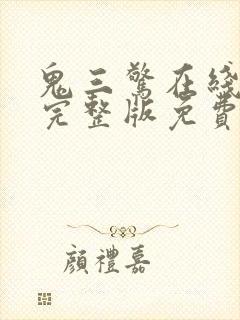 鬼三驚在綫
完整版免費
顔禮嘉